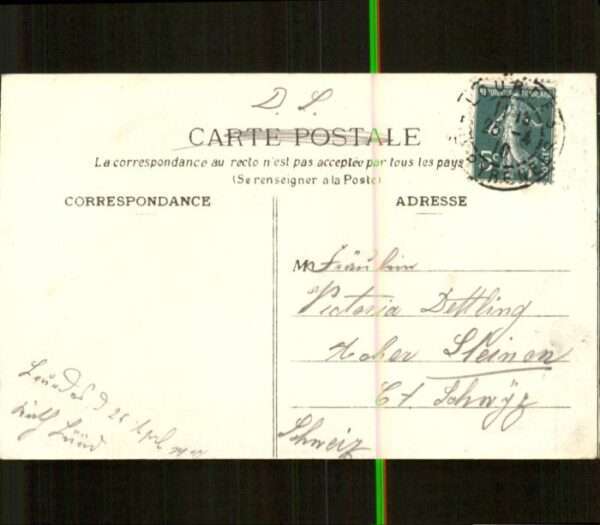 D. S.
CARTE POSTALE
La correspondance au recto n'est pas acceptée par tous les pays
(Se renseigner à la Poste)
CORRESPONDANCE
ADRESSE
M Fräulein
Victoria Dettling
Acher Steinen
Ct. Schwyz
Schweiz
Lourdes d 26 April